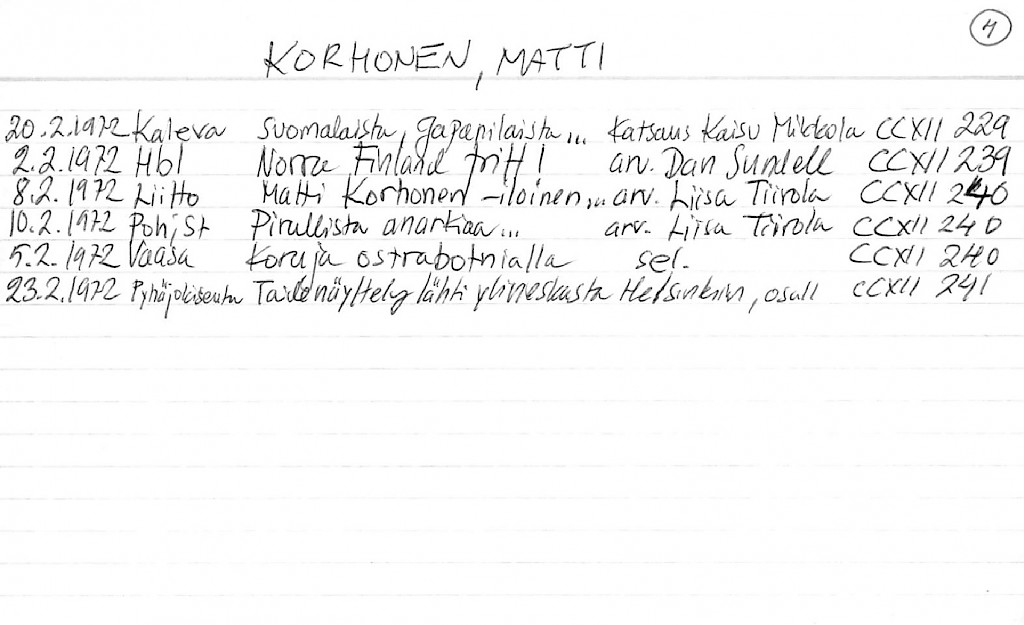 4
KORHONEN, MATTI
20.2.1972 Kaleva Suomalaista, Japanilaista... Katsaus Kaisu Mikkola CCXII 229
2.2.1972 Hbl Norra Finland fritt! arv. Dan Sundell CCXII 239
8.2.1972 Liitto Matti Korhonen -iloinen... arv. Liisa Tiirola CCXII 240
10.2.1972 Pohj St Pirullista anarkiaa... arv. Liisa Tiirola CCXII 240
5.2.1972 Vaasa Koruja ostrabotnialla sel. CCXII 240
23.2.1972 Pyhäjokiseutu Taidenäyttely lähti ylivieskasta Helsinkiin, osall CCXII 241